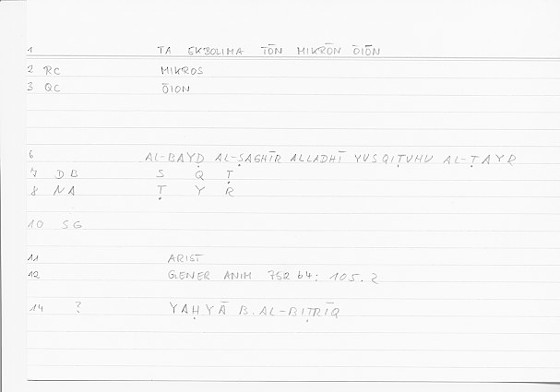 1 TA EKBOLIMA TŌN MIKRŌN ŌIŌN
2 RC MIKROS
3 QC ŌION
6 AL-BAYḌ AL-ṢAGHĪR ALLADHĪ YUSQIṬUHU AL-ṬAYR
7 DB S Q Ṭ
8 NA Ṭ Y R
10 SG
11 ARIST
12 GENER ANIM 752 b4; 105.2
14 ? YAḤYĀ B. AL-BIṬRĪQ